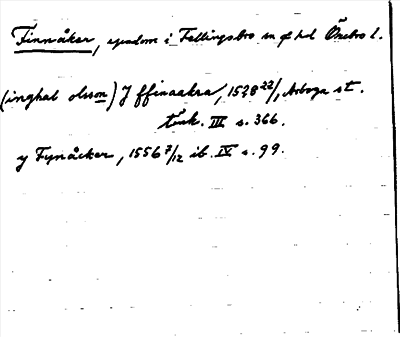 Finnåker, egendom i Fellingsbro sn o hd Örebro l.
(inghal olsson) J ffinaakra, 1528 22/1, Arboga st.
tänk. III s. 366.
y Fynåcker, 1556 7/12 ib. IV s. 99.